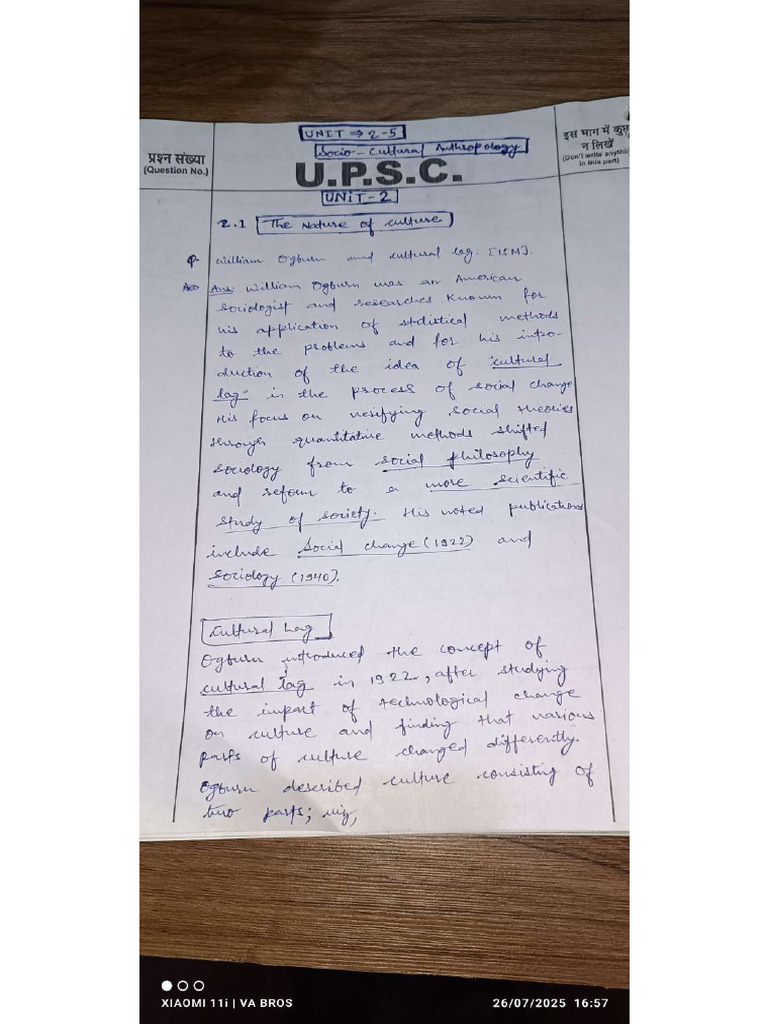 UNIT ⇒ 2-5
Socio-Cultural Anthropology
प्रश्न संख्या
(Question No.)
इस भाग में कुछ
न लिखें
(Don't write anythi
in this part)
U.P.S.C.
UNIT-2
2.1 The Nature of culture
Q. William Ogburn and cultural lag. [15M].
Ans: William Ogburn was an American
sociologist and researcher known for
his application of statistical methods
to the problems and for his intro-
duction of the idea of "cultural
lag" in the process of social change
His focus on verifying social theories
through quantitative methods shifted
sociology from social philosophy
and reform to a more scientific
study of society. His noted publications
include Social change (1922) and
Sociology (1940).
Cultural Lag
Ogburn introduced the concept of
cultural lag in 1922, after studying
the impact of technological change
on culture and finding that various
parts of culture changed differently.
Ogburn described culture consisting of
two parts; viz,
XIAOMI 11i | VA BROS
26/07/2025 16:57